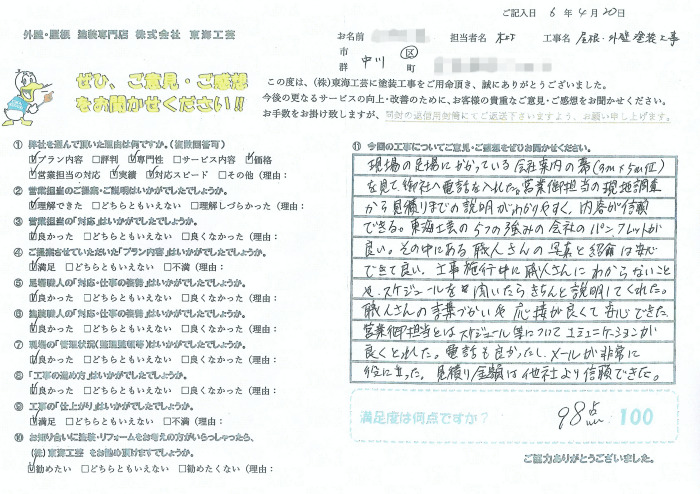 ご記入日 6 年 4 月 20 日
外壁・屋根 塗装専門店 株式会社 東海工芸
お名前 担当者名 工事名 屋根・外壁塗装工事
市 中川 区
群 町
ぜひ、ご意見・ご感想
をお聞かせください!!
この度は、(株)東海工芸に塗装工事をご用命頂き、誠にありがとうございました。
今後の更なるサービスの向上・改善のために、お客様の貴重なご意見・ご感想をお聞かせください。
お手数をお掛け致しますが、同封の返信用封筒にてご返送下さいますよう、お願い申し上げます。
① 弊社を選んで頂いた理由は何ですか。(複数回答可)
☑プラン内容 □評判 ☑専門性 □サービス内容 ☑価格
☑営業担当の対応 ☑実績 ☑対応スピード □その他(理由:
② 営業担当のご提案・ご説明はいかがでしたでしょうか。
☑理解できた □どちらともいえない □理解しづらかった(理由:
③ 営業担当の「対応」はいかがでしたでしょうか。
☑良かった □どちらともいえない □良くなかった(理由:
④ ご提案させていただいた「プラン内容」はいかがでしたでしょうか。
☑満足 □どちらともいえない □不満(理由:
⑤ 足場職人の「対応・仕事の姿勢」はいかがでしたでしょうか。
☑良かった □どちらともいえない □良くなかった(理由:
⑥ 塗装職人の「対応・仕事の姿勢」はいかがでしたでしょうか。
☑良かった □どちらともいえない □良くなかった(理由:
⑦ 現場の「管理状態(整理整頓等)」はいかがでしたでしょうか。
☑良かった □どちらともいえない □良くなかった(理由:
⑧ 「工事の進め方」はいかがでしたでしょうか。
☑良かった □どちらともいえない □良くなかった(理由:
⑨ 工事の「仕上がり」はいかがでしたでしょうか。
☑満足 □どちらともいえない □不満(理由:
⑩ お知り合いに塗装・リフォームをお考えの方がいらっしゃったら、
(株)東海工芸 をお勧め頂けますでしょうか。
☑勧めたい □どちらともいえない □勧めたくない(理由:
⑪ 今回の工事についてご意見・ご感想をぜひお聞かせください。
現場の足場にかかっている会社案内の幕(3m×5m位)
を見て御社へ電話を入れた。営業御担当の現地調査
から見積りまでの説明がわかりやすく、内容が信頼
できる。東海工芸の5つの強みの会社のパンフレットが
良い。その中にある職人さんの写真と紹介は安心
できて良い。工事施行中に職人さんにわからないこと
や、スケジュールを聞いたらきちんと説明してくれた。
職人さんの言葉づかいや応接が良くて安心できた。
営業御担当とはスケジュール等についてコミュニケーションが
良くとれた。電話も良かったし、メールが非常に
役に立った。見積り金額は他社より信頼できた。
満足度は何点ですか? 98点 100
ご協力ありがとうございました。